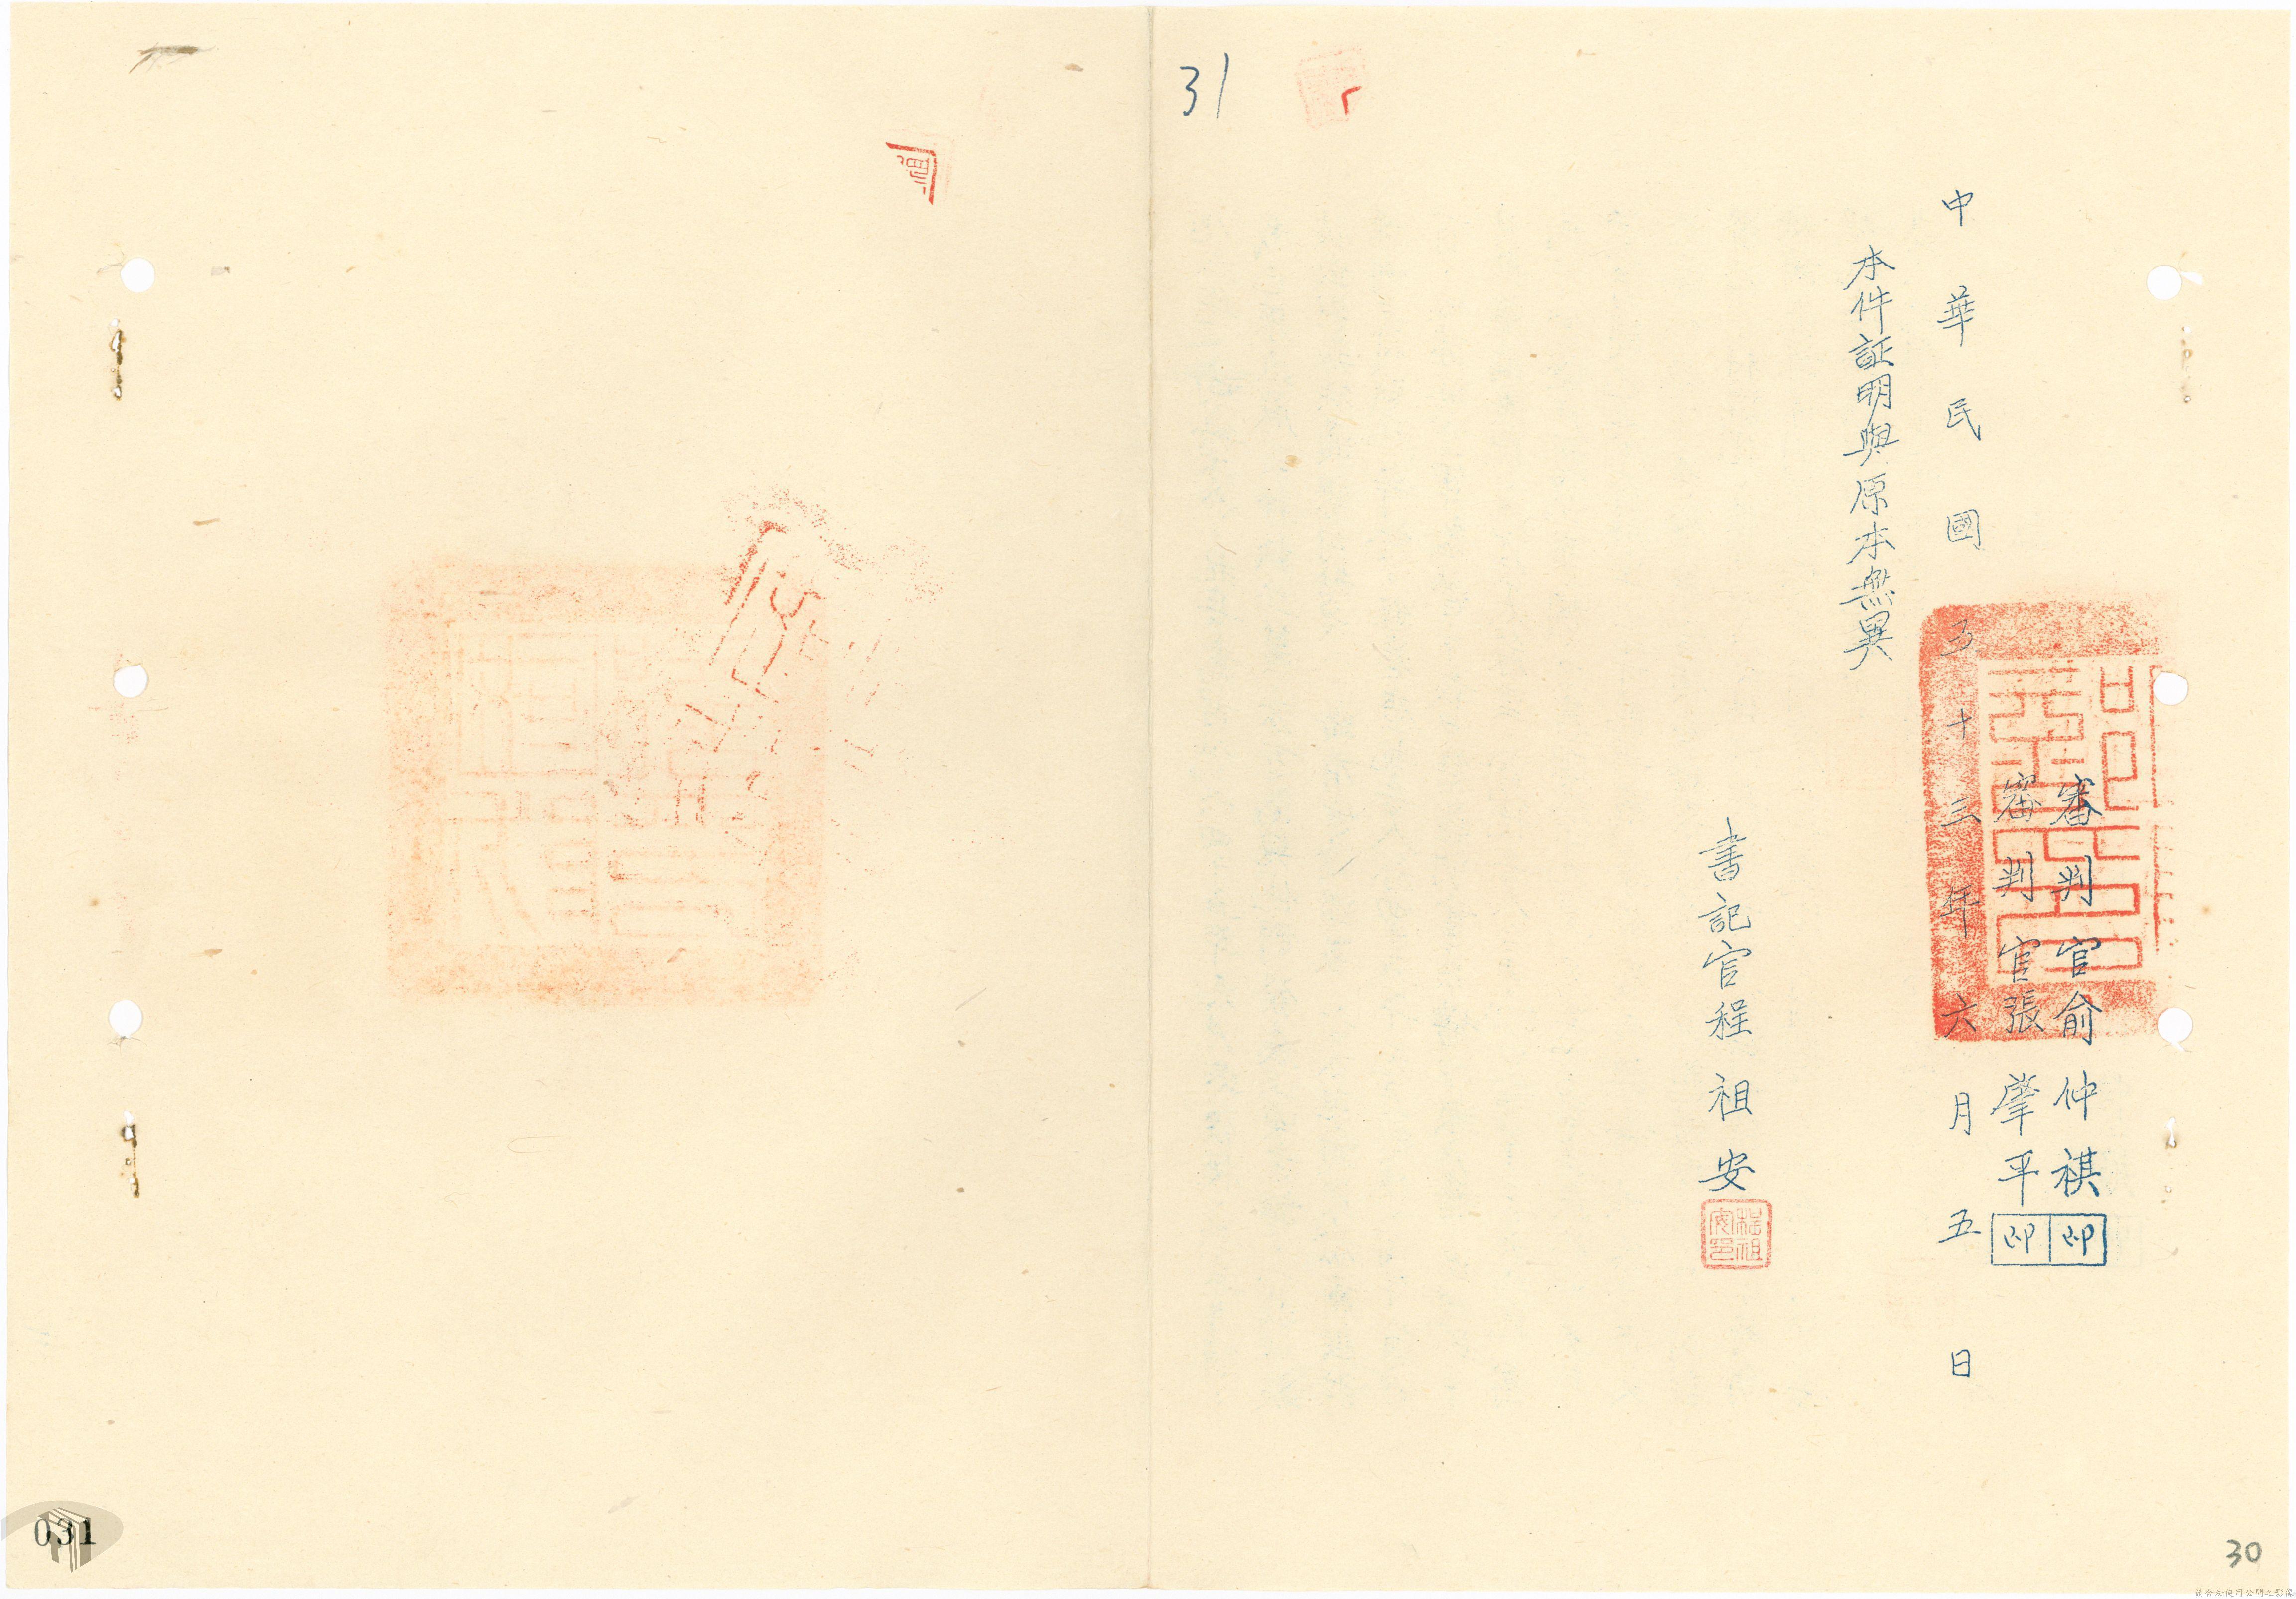 審判官俞仲祺印
審判官張肇平印
中華民國十三年六月五日
本件証明與原本無異
書記官程祖安
程祖安印
31
30
031
請合法使用公開之影像